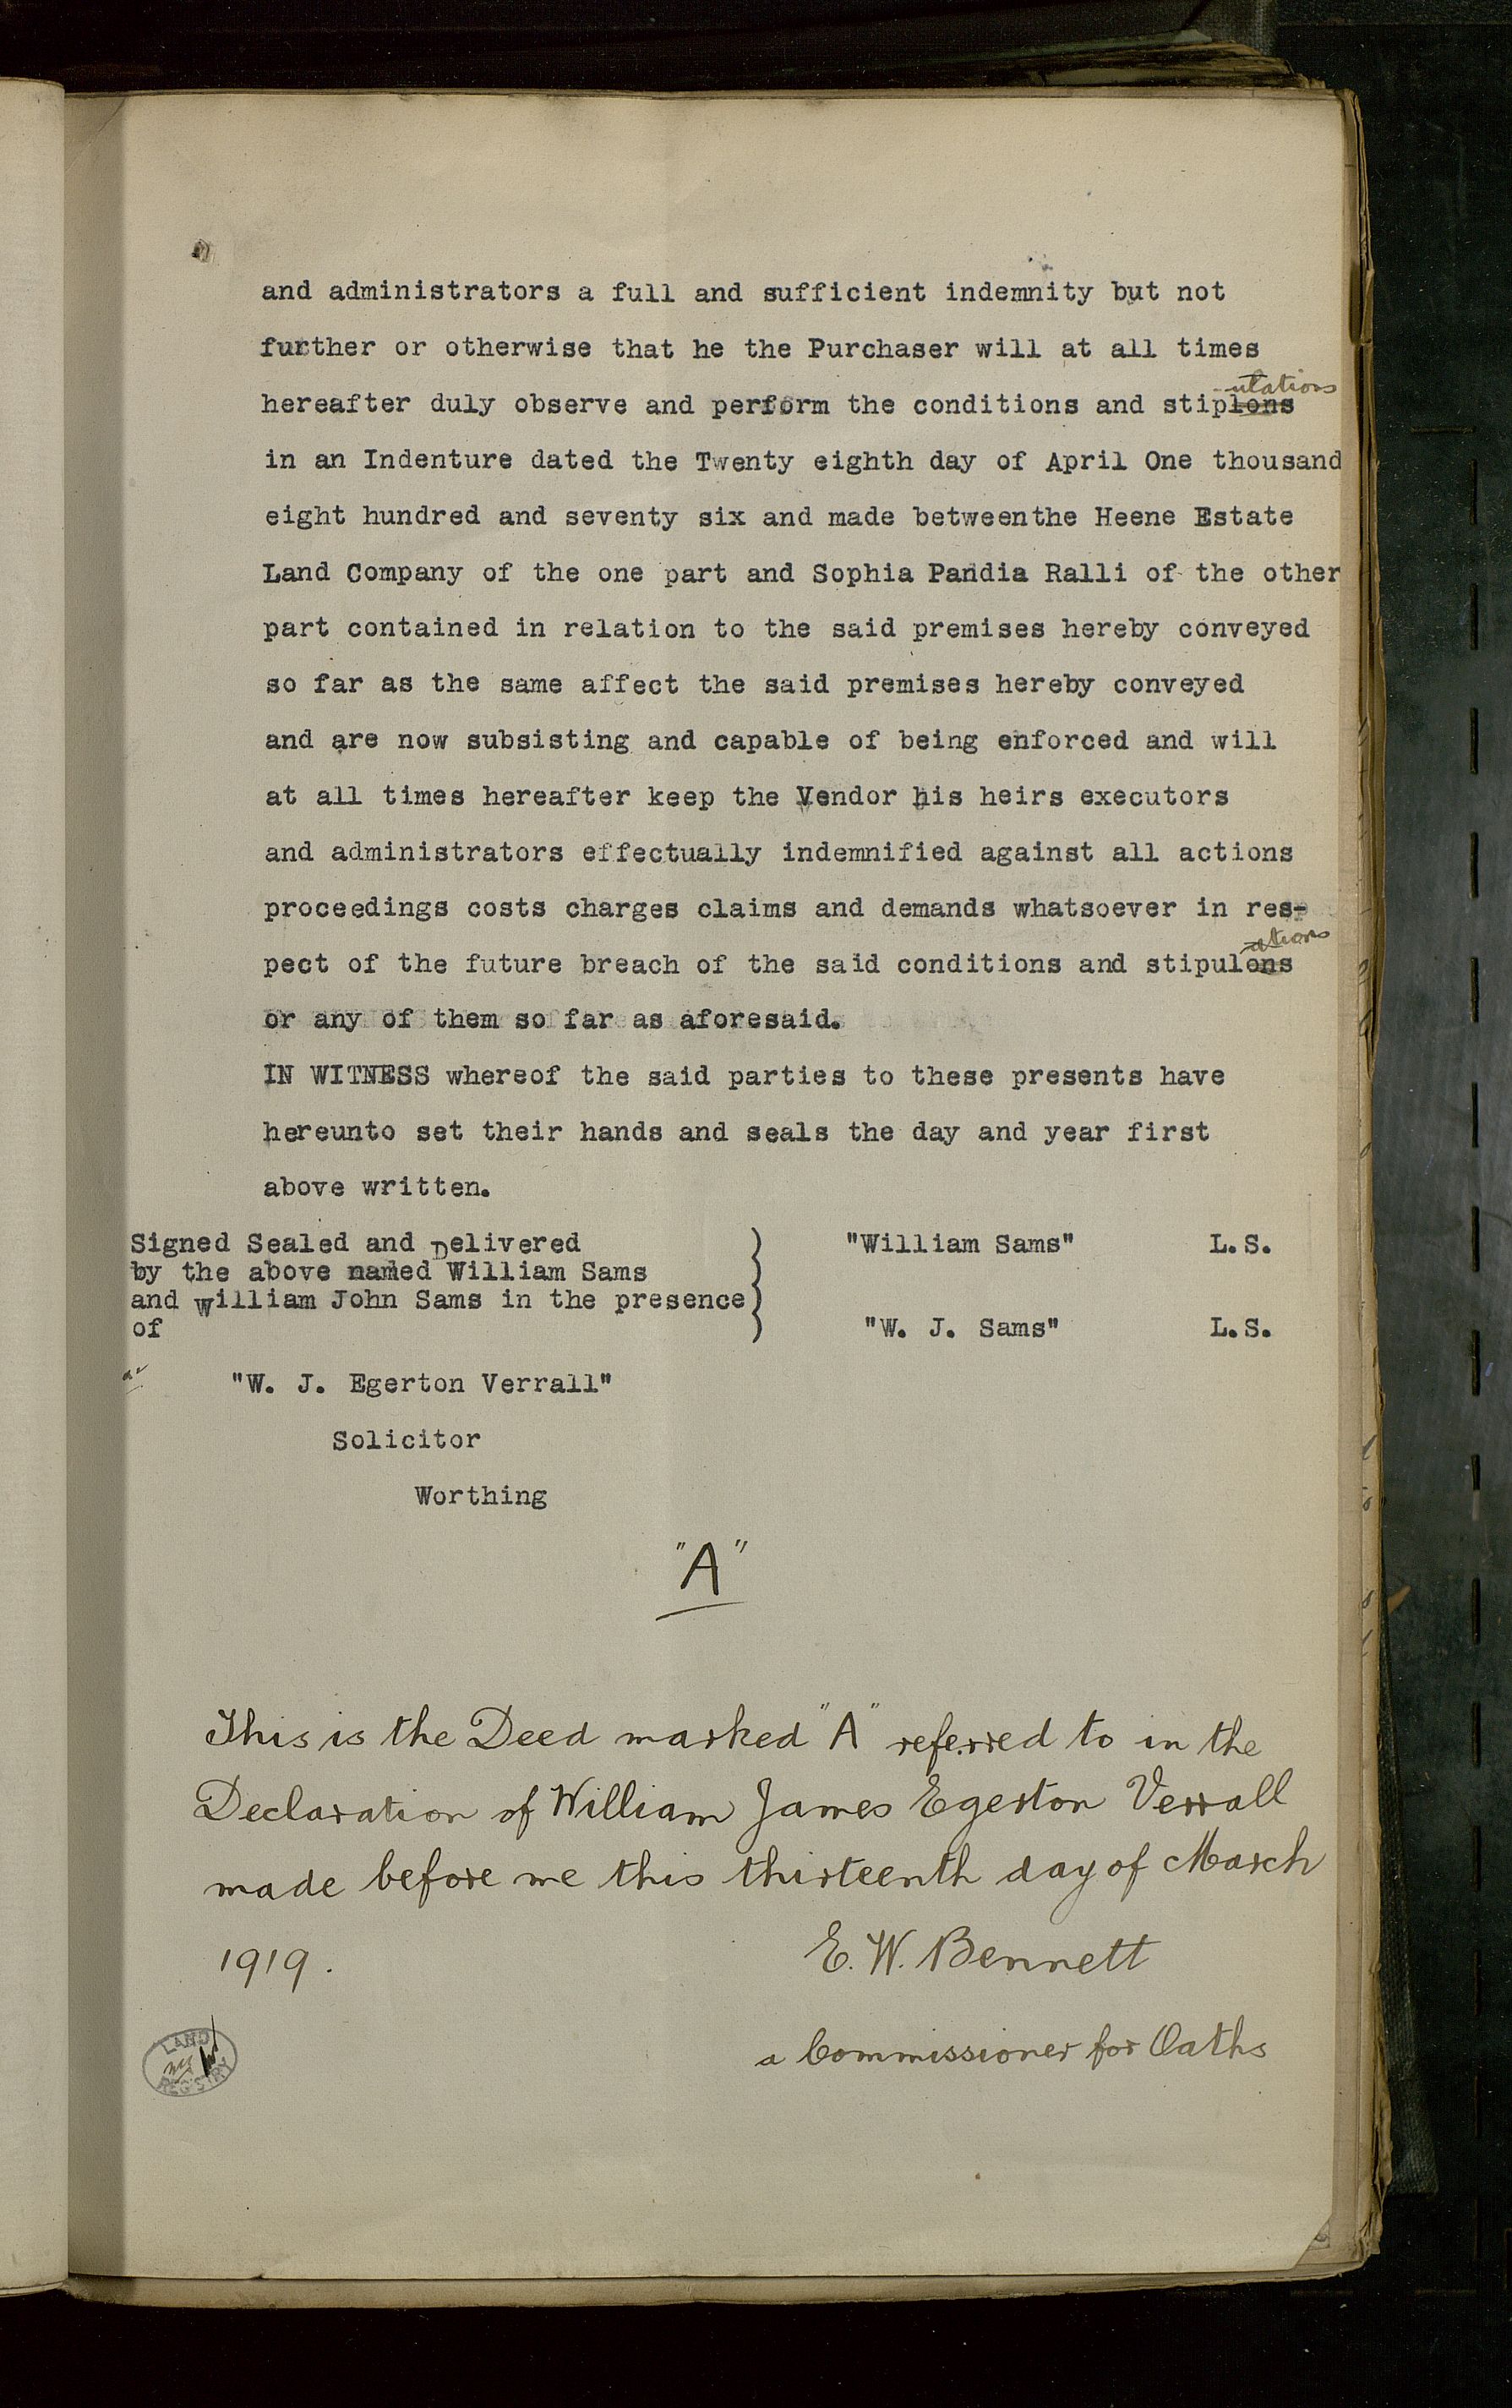 and administrators a full and sufficient indemnity but not
further or otherwise that he the Purchaser will at all times
-ulations
hereafter duly observe and perform the conditions and stiplons
in an Indenture dated the Twenty eighth day of April One thousand
eight hundred and seventy six and made betweenthe Heene Estate
Land Company of the one part and Sophia Pandia Ralli of the other
part contained in relation to the said premises hereby conveyed
so far as the same affect the said premises hereby conveyed
and are now subsisting and capable of being enforced and will
at all times hereafter keep the Vendor his heirs executors
and administrators effectually indemnified against all actions
proceedings costs charges claims and demands whatsoever in res-
ations
pect of the future breach of the said conditions and stipulons
or any of them so far as aforesaid.
IN WITNESS whereof the said parties to these presents have
hereunto set their hands and seals the day and year first
above written.
Signed Sealed and Delivered } "William Sams" L.S.
by the above named William Sams
and William John Sams in the presence
of "W. J. Sams" L.S.
"W. J. Egerton Verrall"
Solicitor
Worthing
"A"
This is the Deed marked "A" referred to in the
Declaration of William James Egerton Verrall
made before me this thirteenth day of March
1919. E. W. Bennett
a Commissioner for Oaths
LAND
REGISTRY